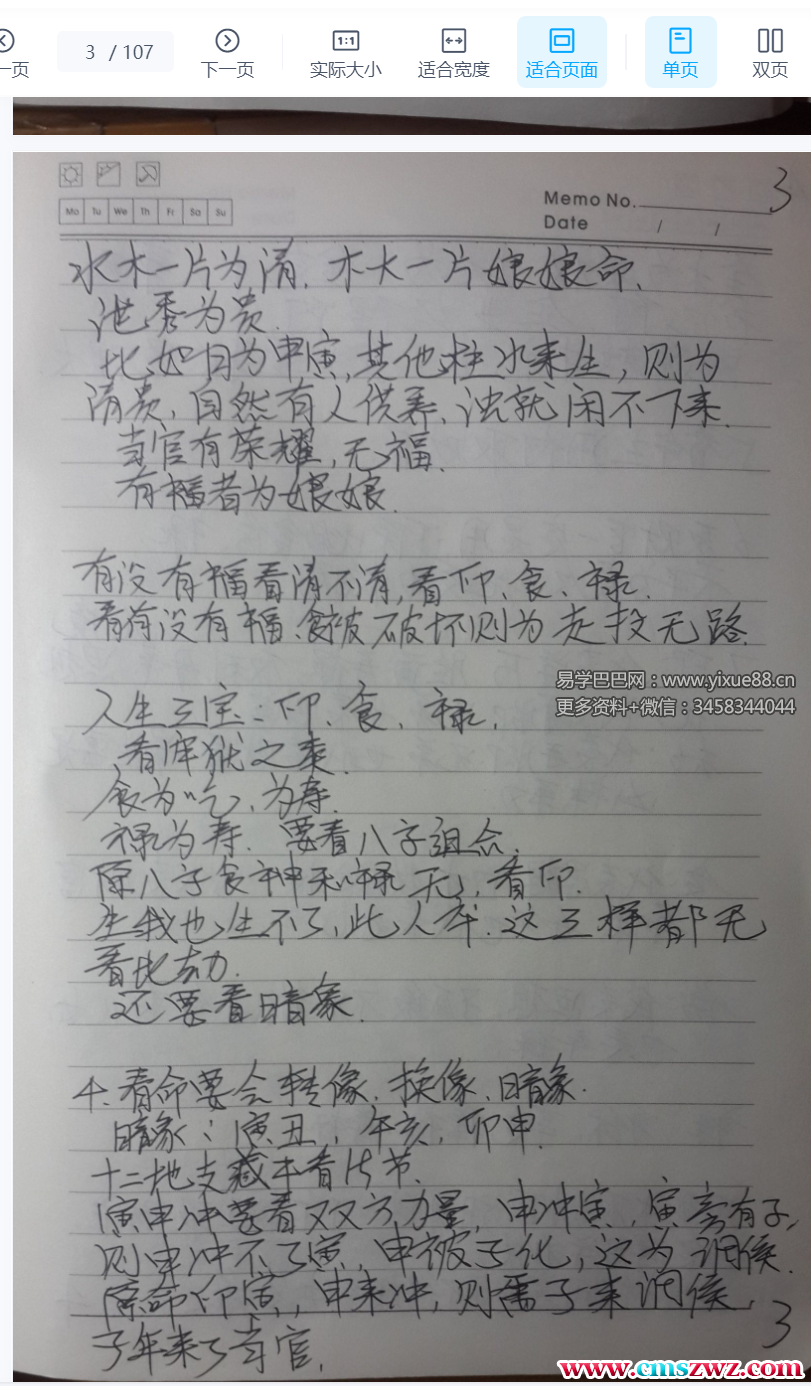 一页
3 / 107
下一页
1:1
实际大小
适合宽度
适合页面
单页
双页
Mo Tu We Th Fr Sa Su
Memo No.
3
Date / /
水木一片为清.木火一片娘娘命.
泄秀为贵.
比如日为甲寅,其他柱水来生,则为
清贵,自然有人供养、浊就闲不下来.
当官有荣耀,无福.
有福者为娘娘.
有没有福看清不清,看印、食、禄.
看有没有福、食被破坏则为走投无路.
易学巴巴网:www.yixue88.cn
更多资料+微信:3458344044
人生三宝:印、食、禄.
看牢狱之
食为吃,为寿.
禄为寿.要看八字组合.
原八字食神和禄无,看印.
生我也生不了,此人.这三样都无
看比劫.
还要看暗象.
4.看命要会转像.换像、暗象.
暗象:寅丑,午亥,卯申.
十二地支藏本看15节.
寅申冲要看双方力量,申冲寅,寅旁有子,
则申冲不了寅,申被子化,这为调侯.
原命印寅,申来冲,则需子来调侯,
子年来了当官.
3
www.cmszwz.com